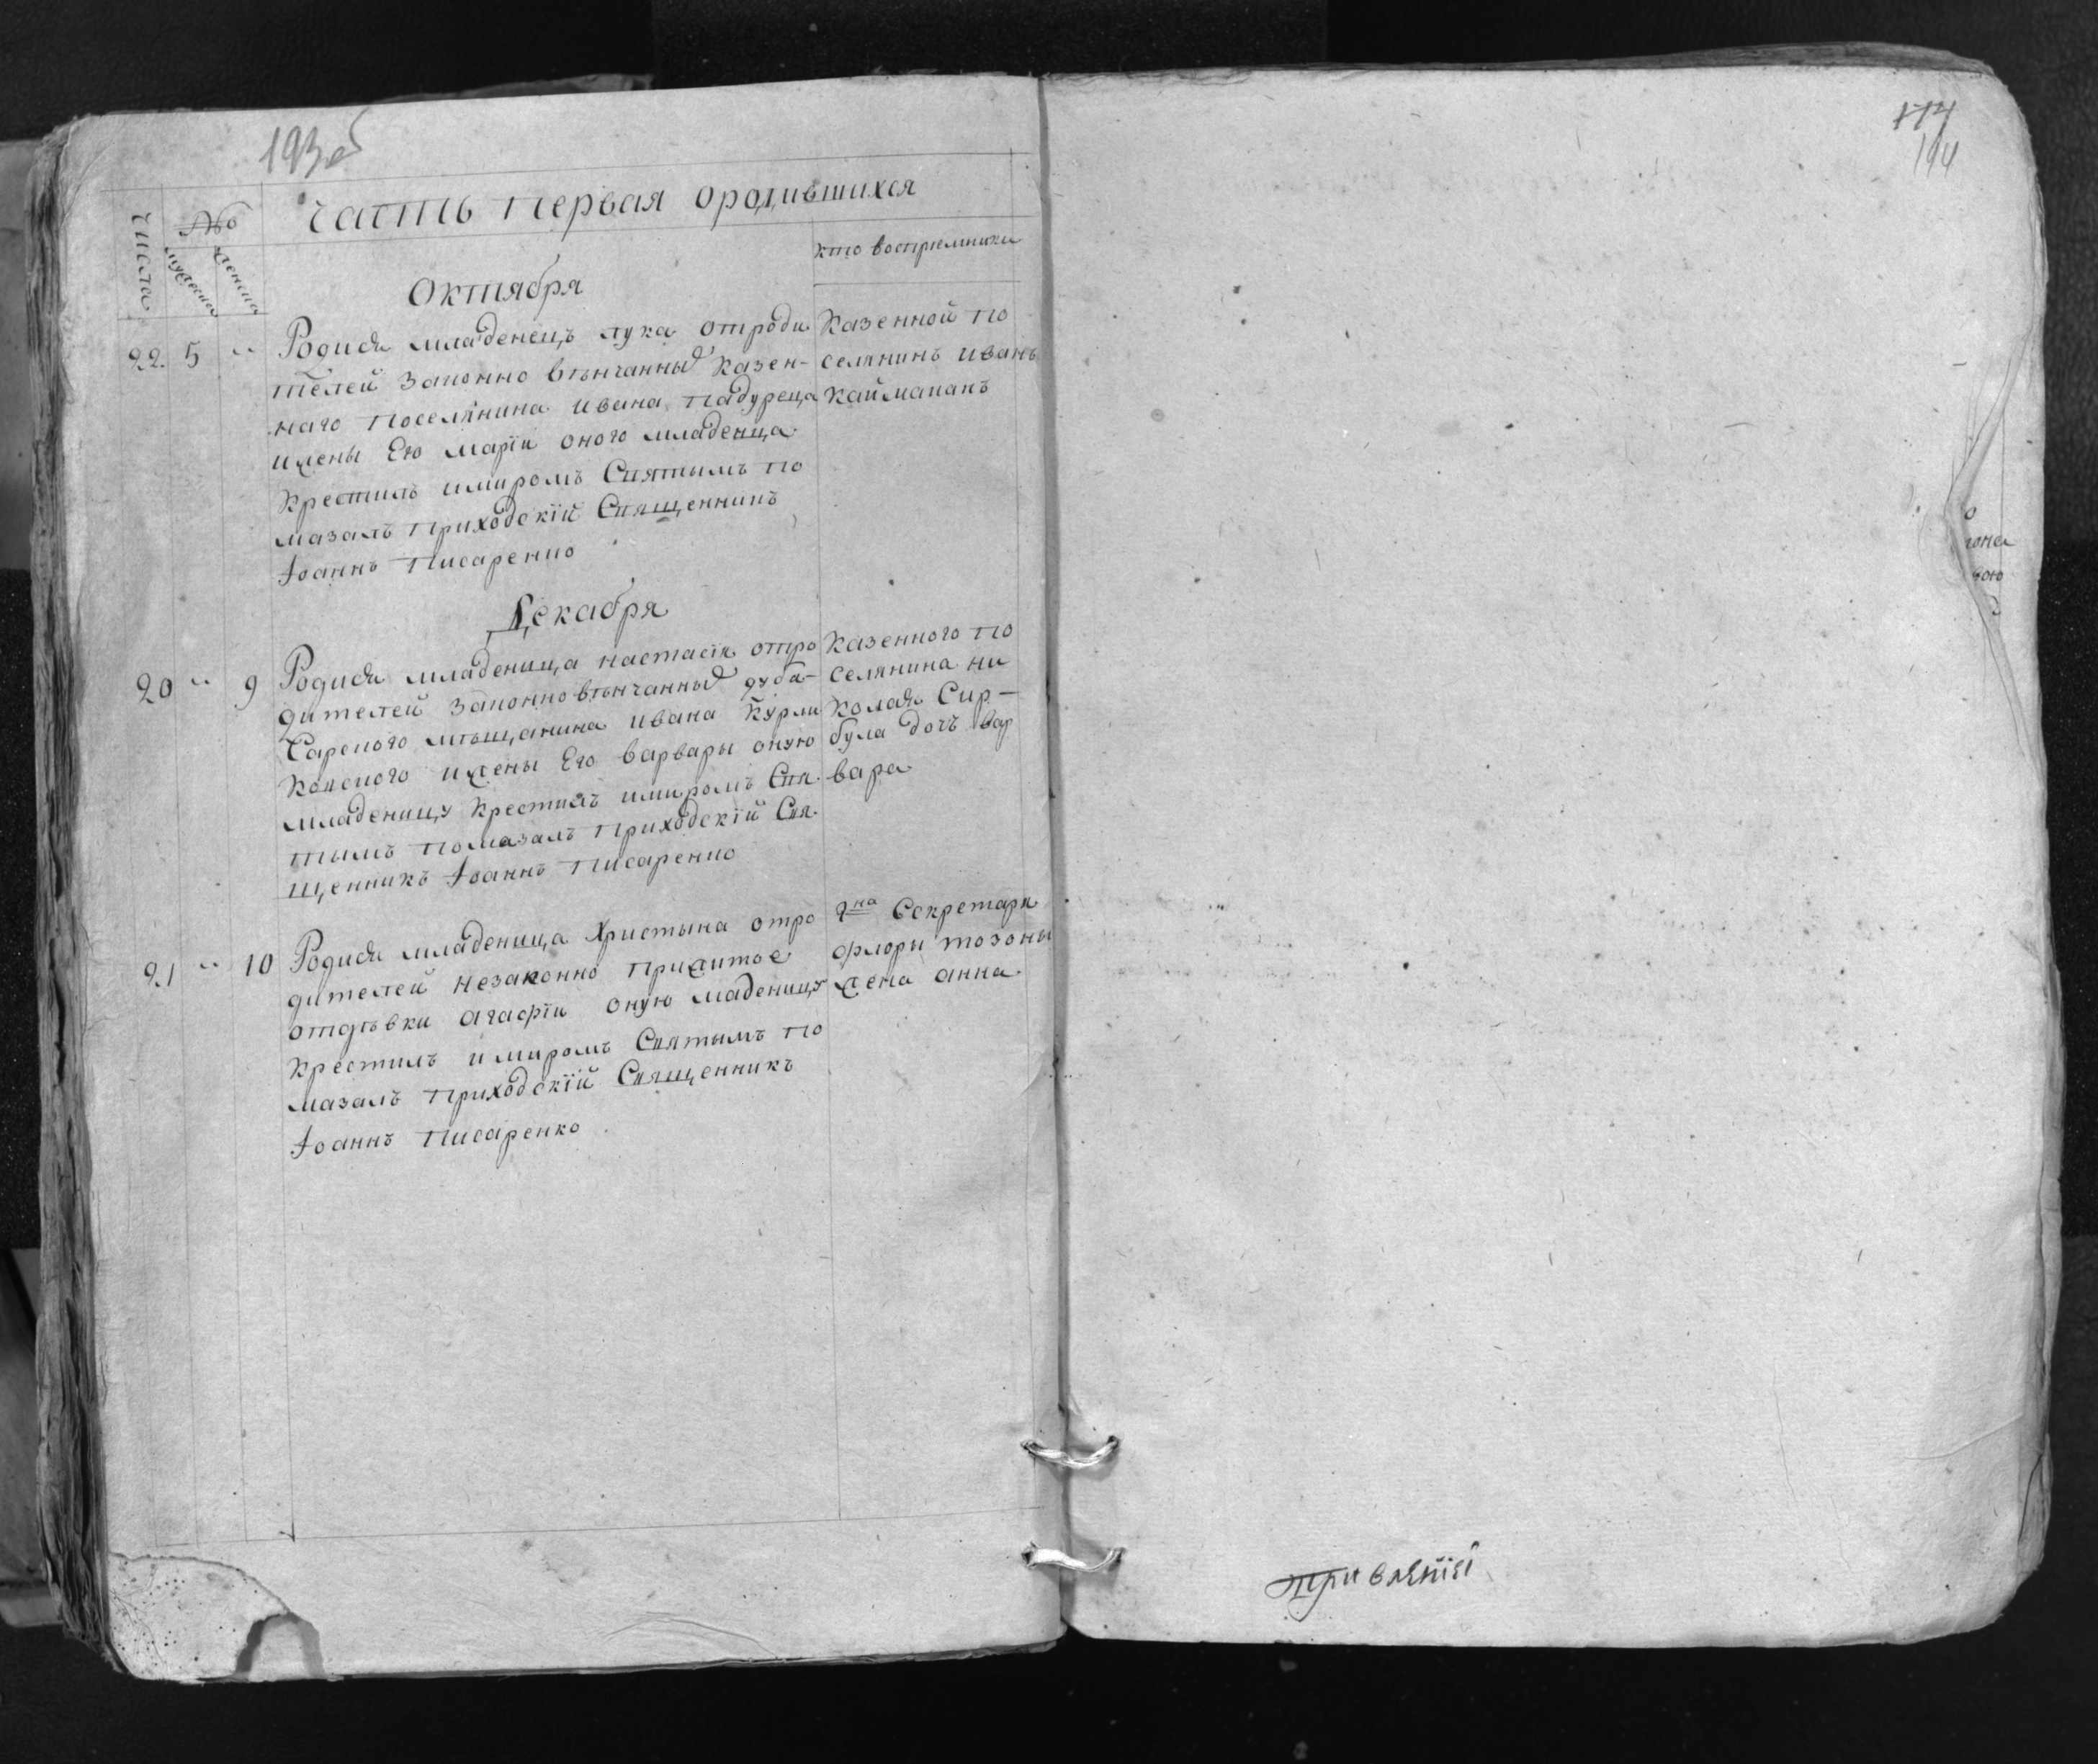 193об
Часть Первая ородившихся
Числа
№о
мужеска
женска
кто воспрiемники
Октября
22. 5 " Родися младенецъ лука отроди
телей законно вѣнчанных казен-
наго поселянина ивана Падуреца
ижены Его марїи оного младенца
крестилъ имиромъ Святымъ по
мазалъ приходскїй Священникъ
Іоаннъ Писаренко
Казенной по
селянинъ иванъ
Каймаканъ
Декабря
20 " 9 Родися младеница настасїя отро
дителей законно вѣнчанных дуба-
сарского мѣщанина ивана Курли
ковского ижены Его варвары оную
младеницу крестилъ имиромъ Свя
тымъ помазалъ приходскїй Свя
щенникъ Іоаннъ Писаренко
Казенного по
селянина ни
колая Сир-
була дочъ вар
вара
21 " 10 Родися младеница Христына отро
дителей незаконно прижитое
отдѣвки агафїи оную маденицу
крестилъ имиромъ Святымъ по
мазалъ приходскїй Священникъ
Іоаннъ Писаренко
гна Секретаря
флори тозоны
жена анна
174
194